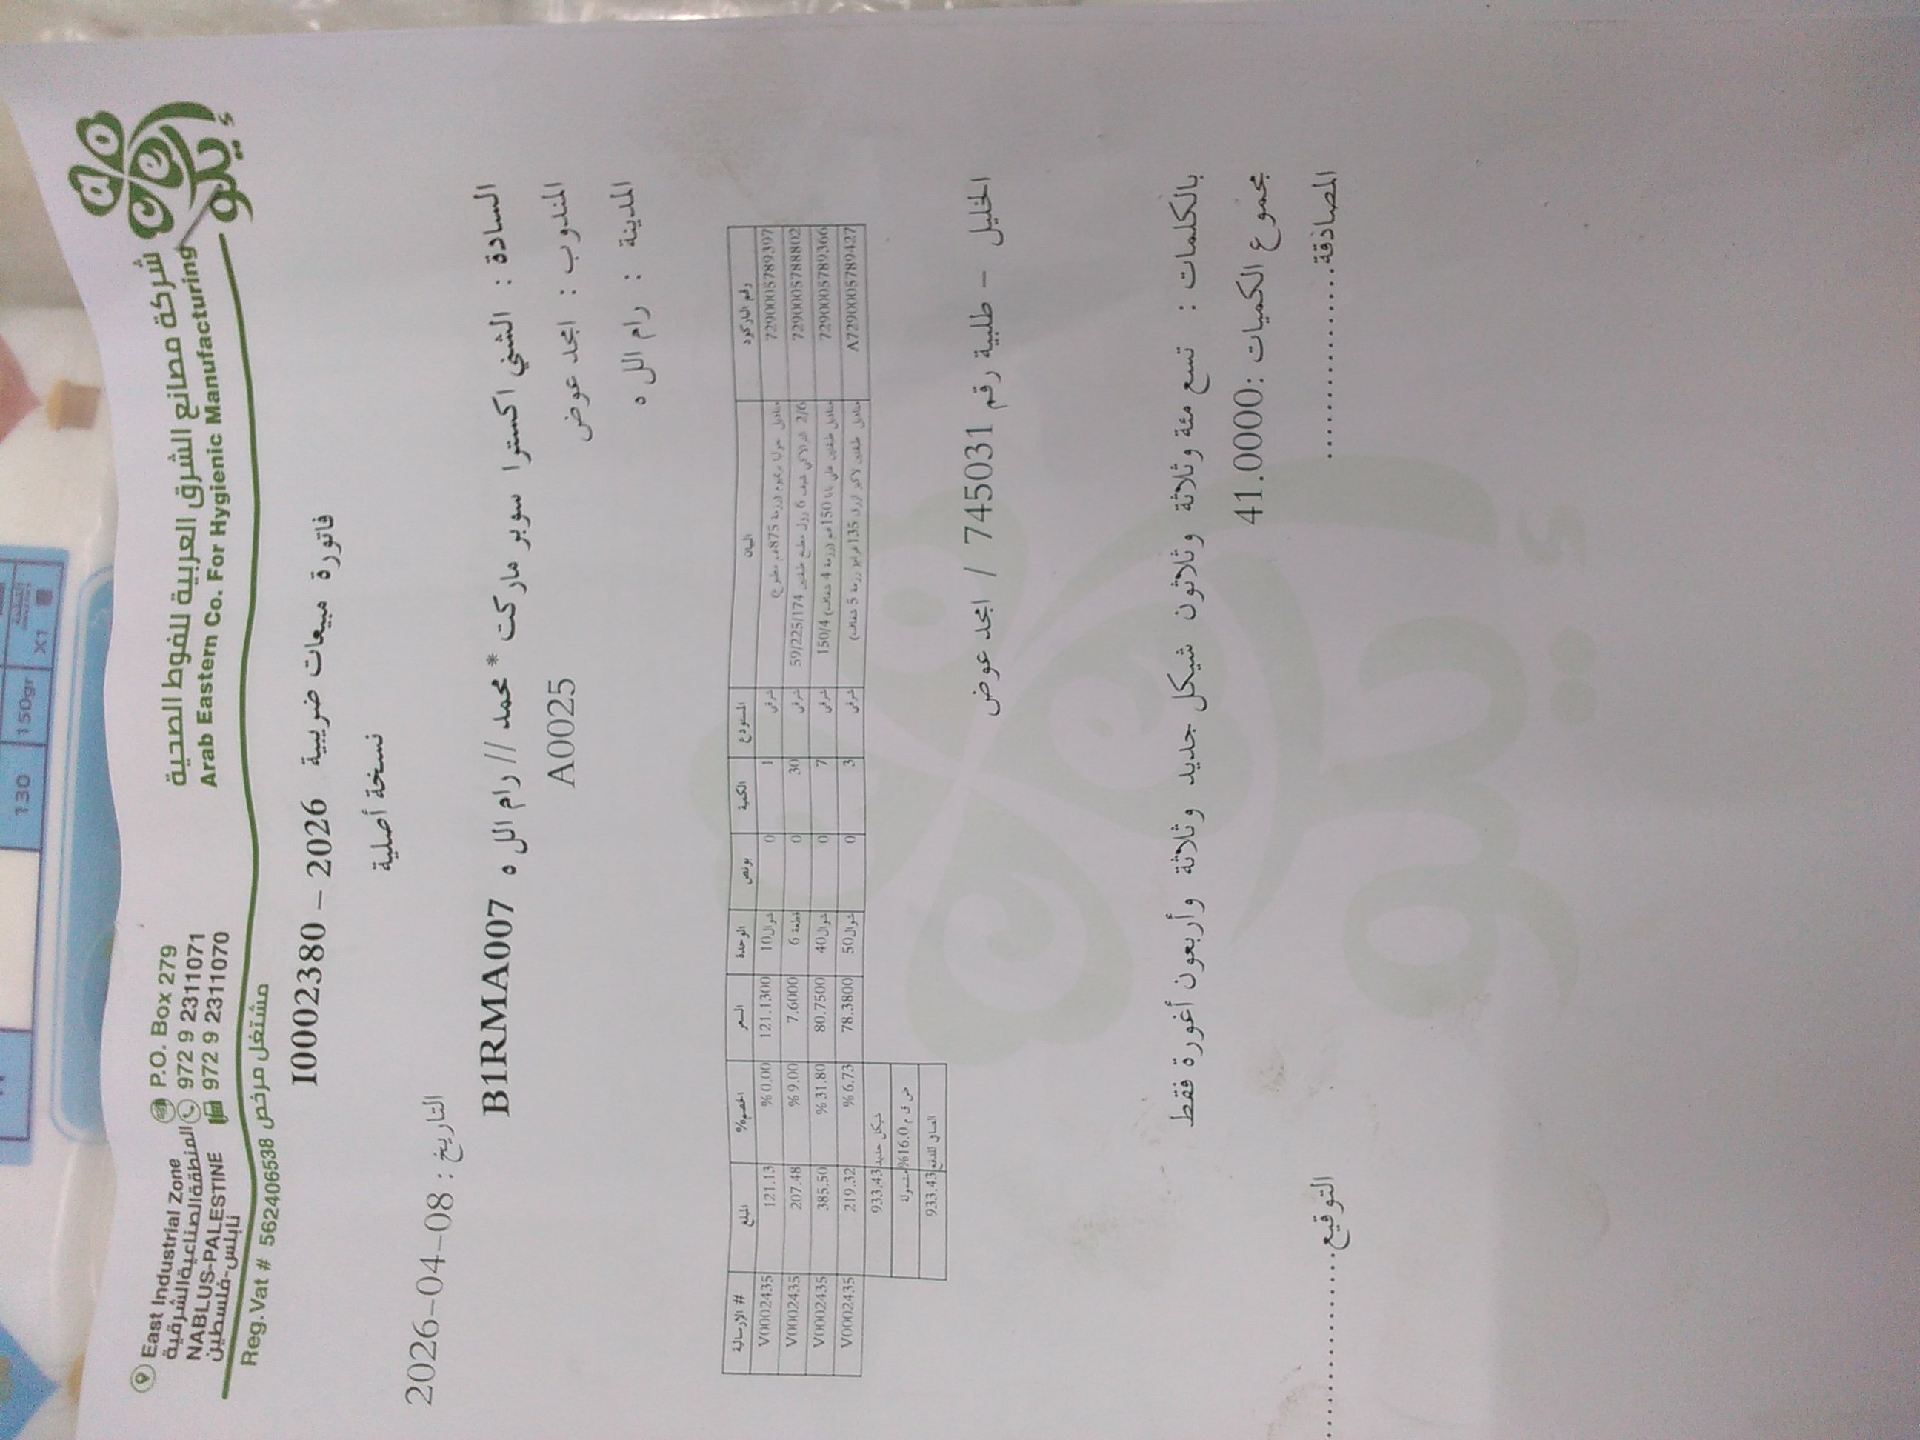 شركة مصانع الشرق العربية للفوط الصحية
Arab Eastern Co. For Hygienic Manufacturing
إيكو
East Industrial Zone
المنطقة الصناعية الشرقية
NABLUS-PALESTINE
نابلس-فلسطين
P.O. Box 279
972 9 2311071
972 9 2311070
Reg.Vat # 562406538 مشتغل مرخص
فاتورة مبيعات ضريبية I0002380 – 2026
نسخة أصلية
التاريخ : 2026-04-08
السادة : الشني اكسترا سوبر ماركت *محمد // رام الل ه B1RMA007
المندوب : امجد عوض A0025
المدينة : رام الل ه
رقم الباركود البيان المستودع الكمية بونص الوحدة السعر الخصم% المبلغ # الارسالية
7290005789397 شرقي 1 0 شوال10 121.1300 % 0.00 121.13 V0002435
7290005788802 59/225/174 شرقي 30 0 6 7.6000 % 9.00 207.48 V0002435
7290005789366 150/4 شرقي 7 0 شوال40 80.7500 % 31.80 385.50 V0002435
A7290005789427 شرقي 3 0 شوال50 78.3800 % 6.73 219.32 V0002435
شيكل جديد 933.43
ض ق م %16.0 مشمولة
الصافي للدفع 933.43
الخليل - طلبية رقم 745031 / امجد عوض
بالكلمات : تسع مئة وثلاثة وثلاثون شيكل جديد وثلاثة وأربعون أغورة فقط
مجموع الكميات :41.0000
المصادقة..................
التوقيع..................
130
150gr
X1